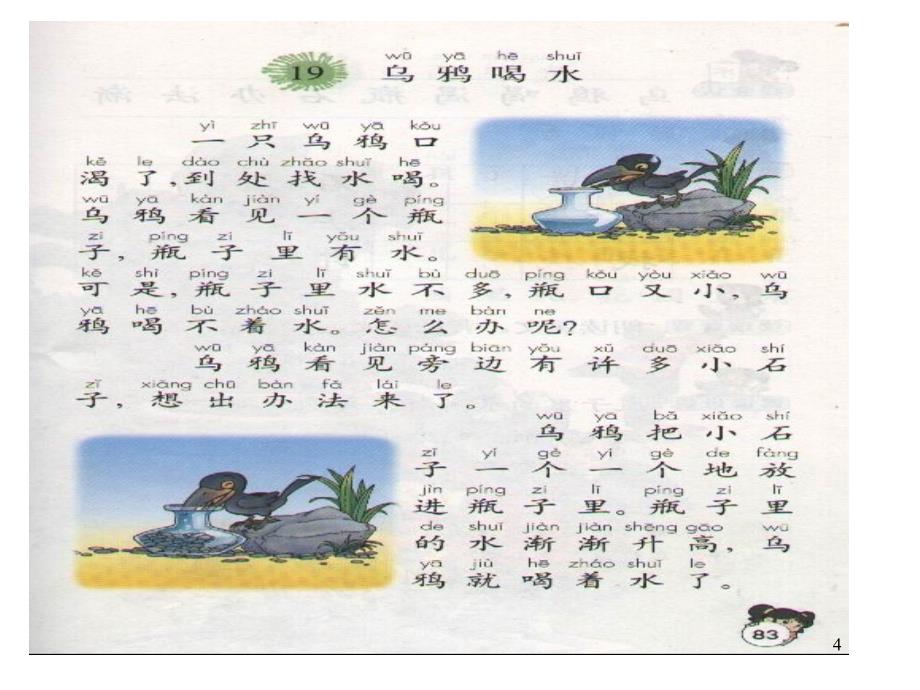 wū yā hē shuǐ
19 乌鸦喝水
yì zhī wū yā kǒu
一只乌鸦口
kě le dào chù zhǎo shuǐ hē
渴了,到处找水喝。
wū yā kàn jiàn yí gè píng
乌鸦看见一个瓶
zi píng zi lǐ yǒu shuǐ
子,瓶子里有水。
kě shì píng zi lǐ shuǐ bù duō píng kǒu yòu xiǎo wū
可是,瓶子里水不多,瓶口又小,乌
yā hē bù zháo shuǐ zěn me bàn ne
鸦喝不着水。怎么办呢?
wū yā kàn jiàn páng biān yǒu xǔ duō xiǎo shí
乌鸦看见旁边有许多小石
zǐ xiǎng chū bàn fǎ lái le
子,想出办法来了。
wū yā bǎ xiǎo shí
乌鸦把小石
zǐ yí gè yí gè de fàng
子一个一个地放
jìn píng zi lǐ píng zi lǐ
进瓶子里。瓶子里
de shuǐ jiàn jiàn shēng gāo wū
的水渐渐升高,乌
yā jiù hē zháo shuǐ le
鸦就喝着水了。
83
4